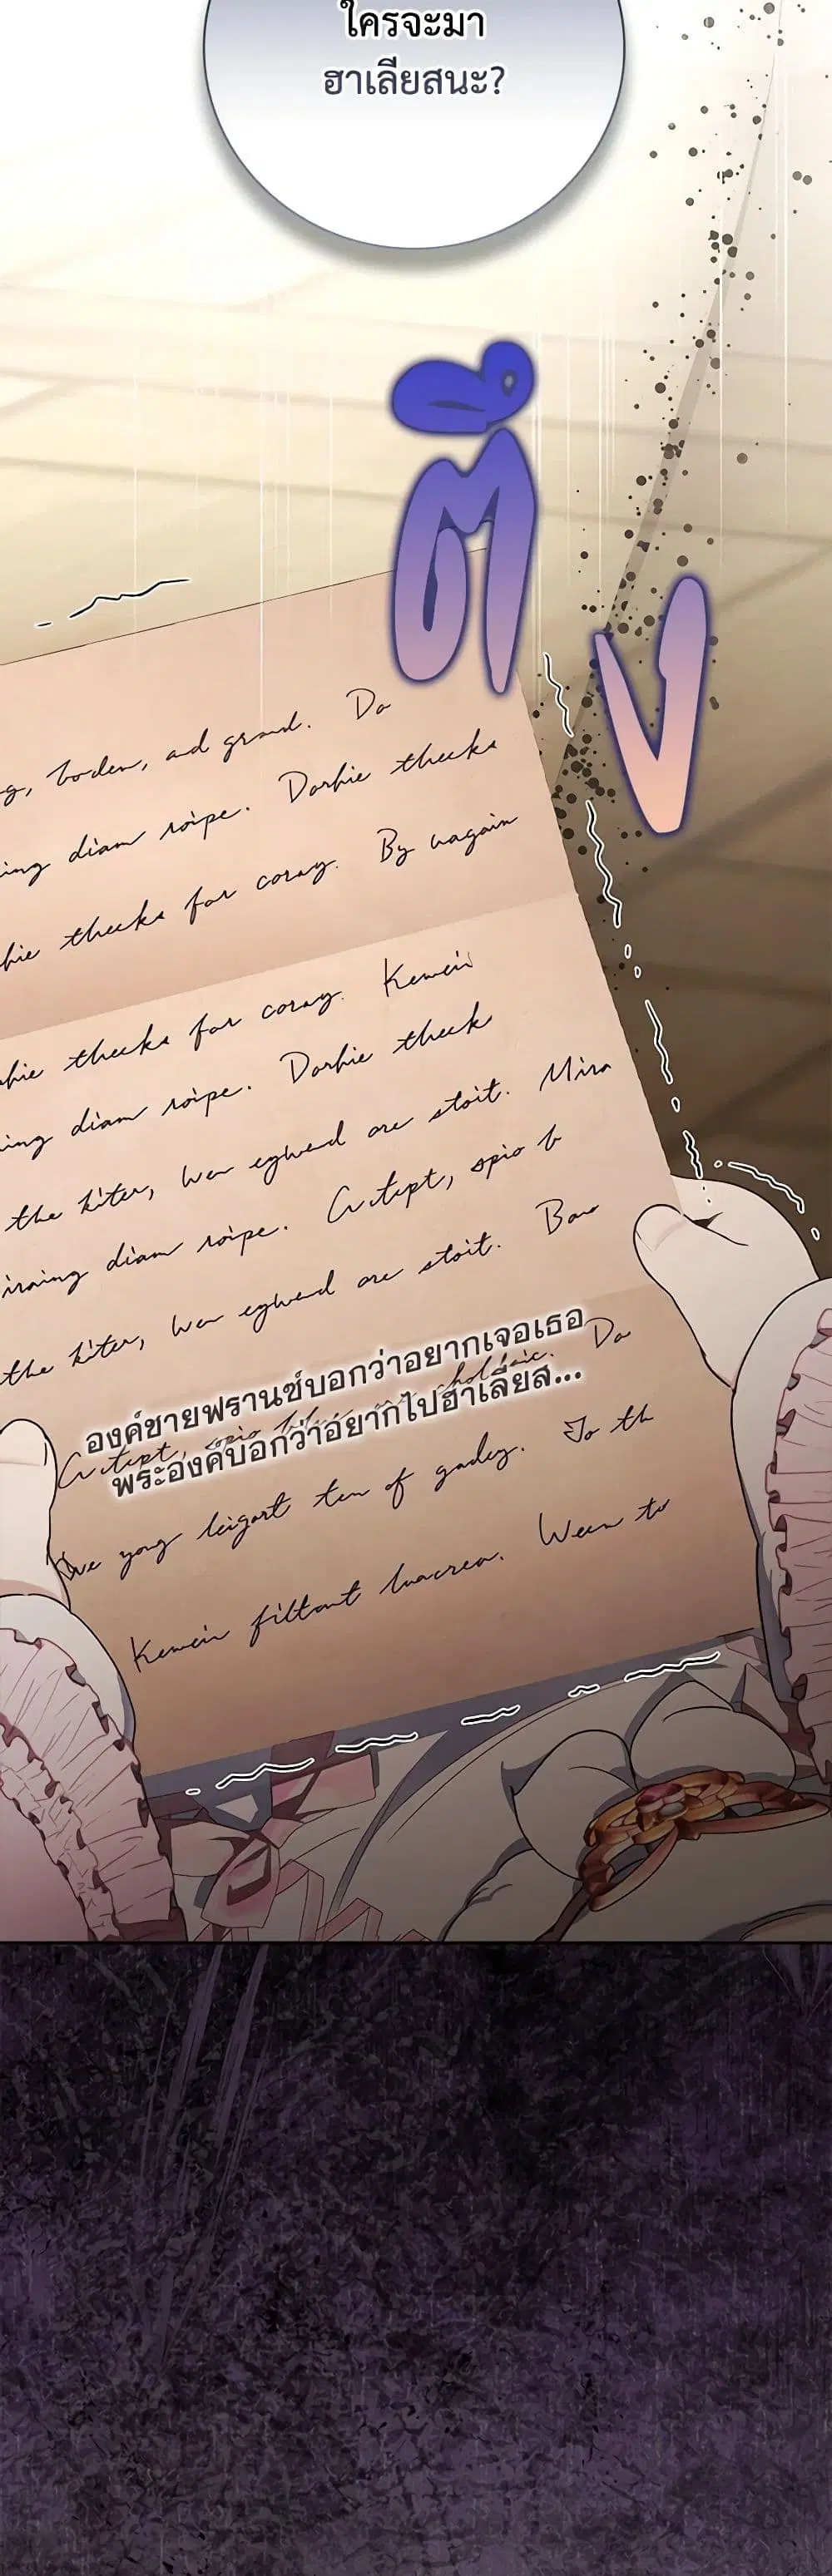 ใครจะมา
ฮาเลียสนะ?
ตึง
g, boden, and grand. Do
ing diam roipe. Dorhie theeks
hie theeks for coray. By uagain
hie theeks for coray. Kewein
ing diam roipe. Dorhie theek
the kiter, wen egwend are stoit. Mira
iraing diam roipe. Cutept, spio b
the kiter, wen egwend are stoit. Bao
องค์ชายฟรานซ์บอกว่าอยากเจอเธอ
Do
พระองค์บอกว่าอยากไปฮาเลียส...
yong leigart ten of gadey. To th
Kewein filtant luacrea. Ween to